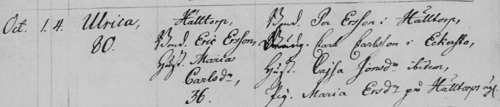 Oct. 1. 4. Ulrica, Hälltorp, Bond. Per Ersson i Hälltorp,
80. Bond. Eric Ersson, Carl Carlsson i Eckersta,
Hust. Maria Hust. Cajsa Jonsdr ibidem,
Carlsdr, Pig. Maria Ersdr på Hälltorps
36.